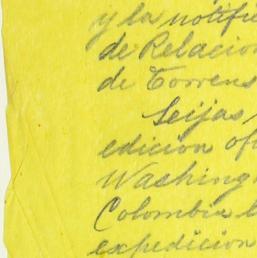 y la notifi
de Relacion
de Torrens
Seijas,
edicion of
Washing
Colombia l
expedicion